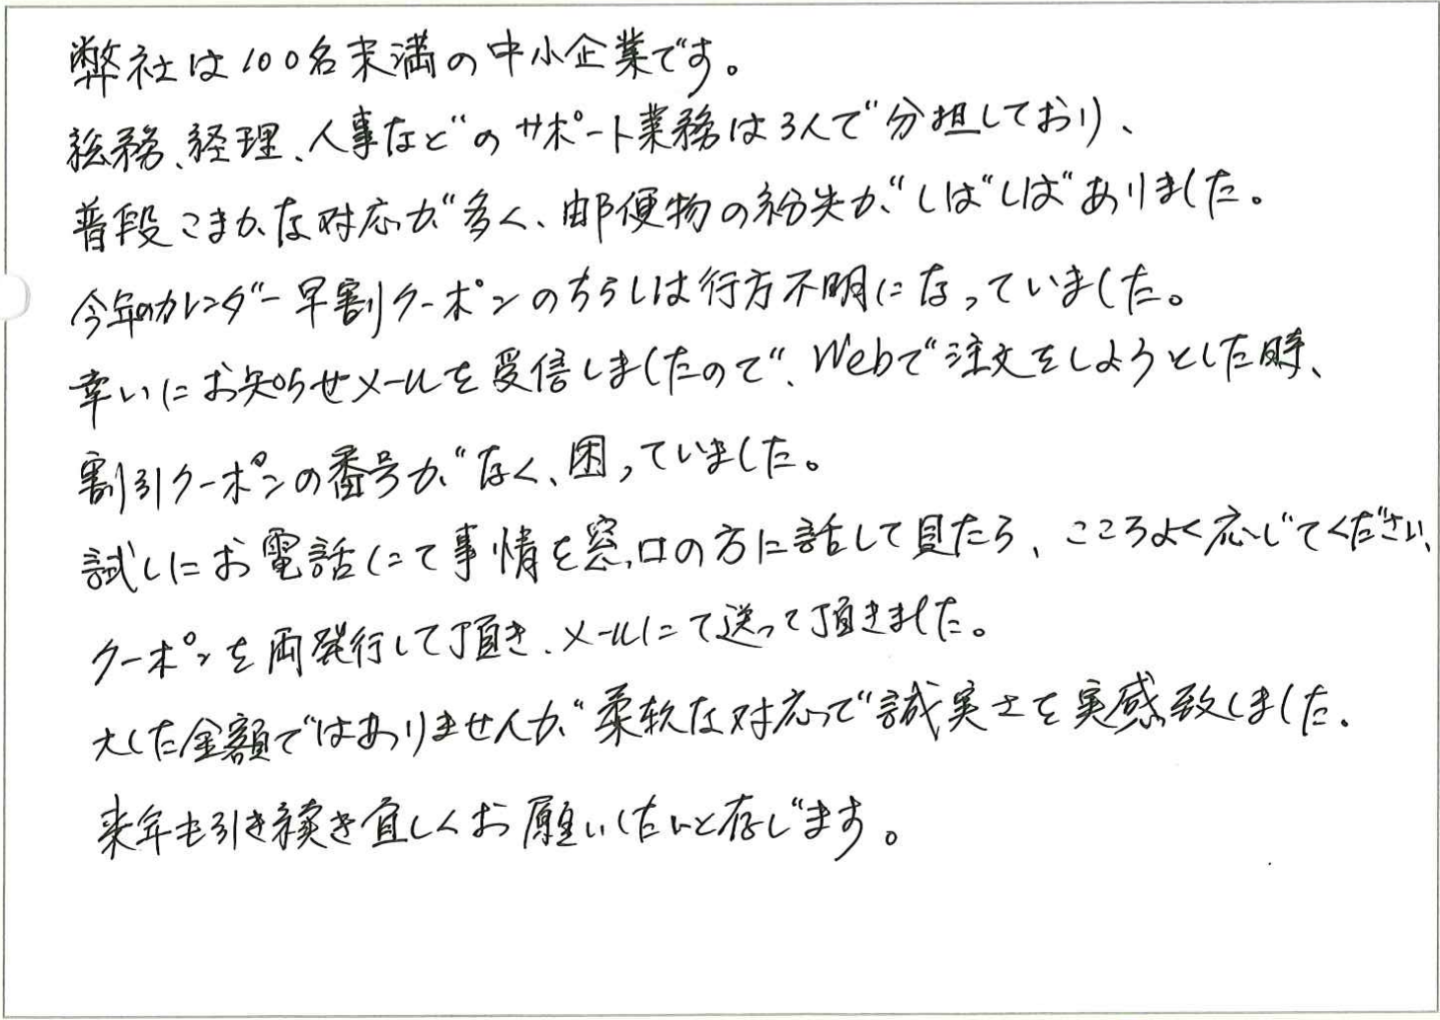 弊社は100名末満の中小企業です。
総務、経理、人事などのサポート業務は3人で分担しており、
普段こまかな対応が多く、郵便物の紛失がしばしばありました。
今年のカレンダー早割クーポンのちらしは行方不明になっていました。
幸いにお知らせメールを受信しましたので、Webで注文をしようとした時、
割引クーポンの番号がなく、困っていました。
試しにお電話にて事情を窓口の方に話して見たら、こころよく応じてください、
クーポンを再発行して頂き、メールにて送って頂きました。
大した金額ではありませんが柔軟な対応で誠実さを実感致しました。
来年も引き続き宜しくお願いしたいと存じます。